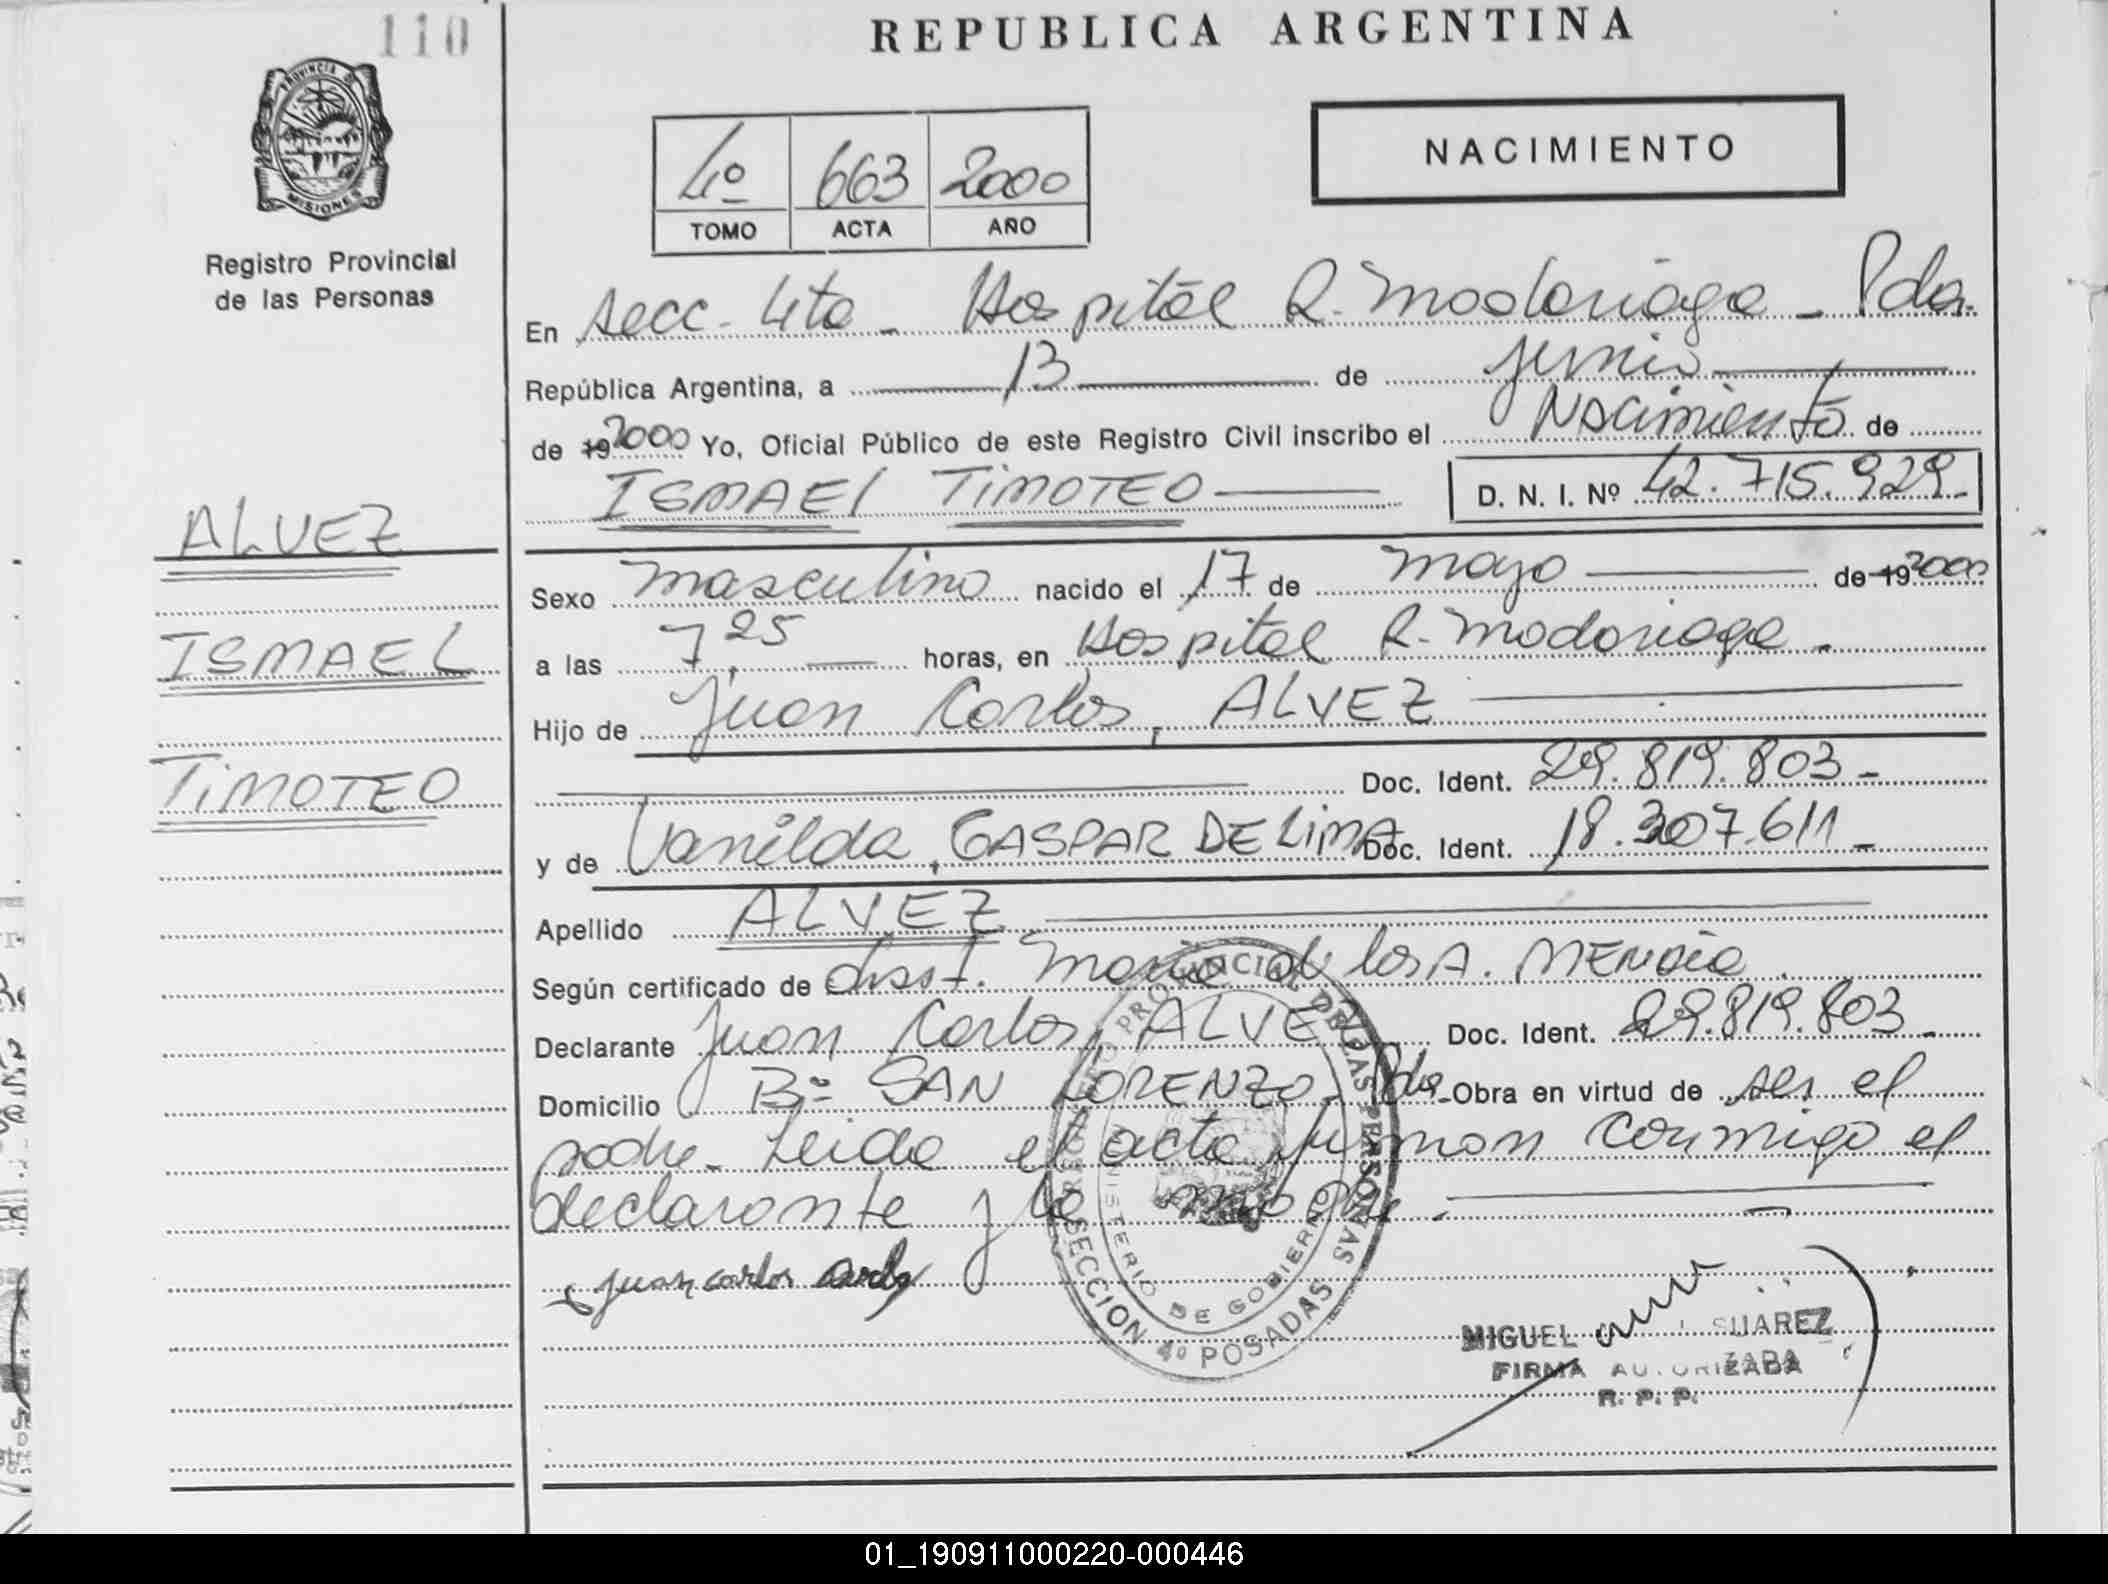 110
REPUBLICA ARGENTINA
PROVINCIA DE MISIONES
Registro Provincial
de las Personas
4º 663 2000
TOMO ACTA AÑO
NACIMIENTO
En Secc. 4ta - Hospital R. Madariaga - Pdas.
República Argentina, a 13 de junio
de 19 2000 Yo, Oficial Público de este Registro Civil inscribo el Nacimiento de
ISMAEL TIMOTEO D. N. I. Nº 42.715.929-
ALVEZ
ISMAEL
TIMOTEO
Sexo masculino nacido el 17 de mayo de 19 2000
a las 7,25 horas, en Hospital R. Madariaga -
Hijo de Juan Carlos, ALVEZ
Doc. Ident. 29.819.803-
y de Vanilda, GASPAR DE LIMA Doc. Ident. 18.307.611-
Apellido ALVEZ
Según certificado de obst. María de los A.
Declarante Juan Carlos, ALVEZ Doc. Ident. 29.819.803-
Domicilio Bº SAN LORENZO - Pdas - Obra en virtud de ser el
padre - Leida el acta firman conmigo el
declarante y la madre.
juan carlos
REGISTRO PROVINCIAL DE LAS PERSONAS
MINISTERIO DE GOBIERNO
SECCION 4º POSADAS
MIGUEL SUAREZ
FIRMA AUTORIZADA
R. P. P.
01_190911000220-000446